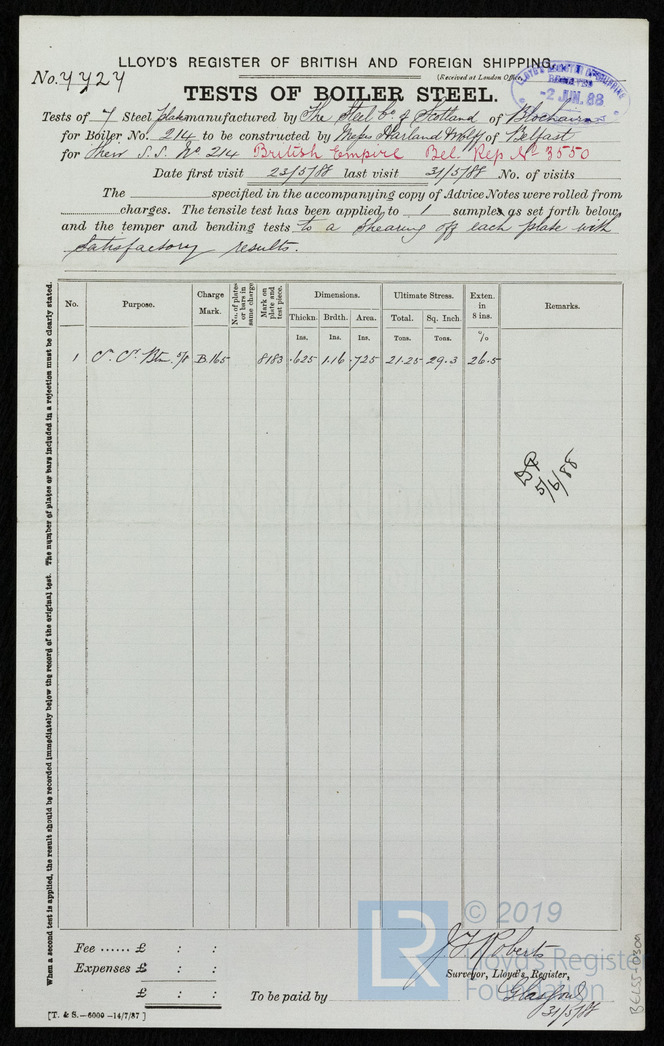 LLOYD'S REGISTER OF BRITISH AND FOREIGN SHIPPING.
No. 7727
(Received at London Office
-2 JUN. 88
TESTS OF BOILER STEEL.
Tests of 7 Steel plates manufactured by The Steel Co of Scotland of Blochairn
for Boiler No. 214 to be constructed by Messrs Harland & Wolff of Belfast
for Their S.S. No 214 British Empire Bel. Rep No 3550
Date first visit 23/5/88 last visit 31/5/88 No. of visits
The specified in the accompanying copy of Advice Notes were rolled from
charges. The tensile test has been applied to 1 samples as set forth below
and the temper and bending tests to a shearing off each plate with
satisfactory results.
When a second test is applied, the result should be recorded immediately below the record of the original test. The number of plates or bars included in a rejection must be clearly stated.
No. Purpose. Charge Mark. No. of plates or bars in same charge Mark on plate and test piece. Dimensions. Ultimate Stress. Exten. in 8 ins. Remarks.
Thickn. Brdth. Area. Total. Sq. Inch.
Ins. Ins. Ins. Tons. Tons. %
1 B.165 8183 .625 1.16 .725 21.25 29.3 26.5
5/6/88
Fee ...... £ : :
Expenses £ : :
£ : :
To be paid by
J F Roberts
Surveyor, Lloyd's Register,
Glasgow
31/5/88
[T. & S.—6000—14/7/87]
LR
© 2019
Lloyd's Register
Foundation